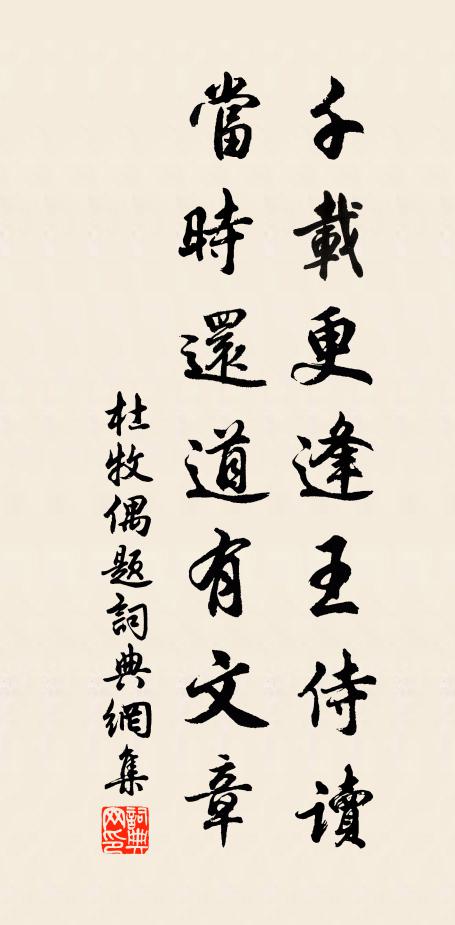 千載更逢王侍讀
當時還道有文章
杜牧偶題詞典網集
詞典網印